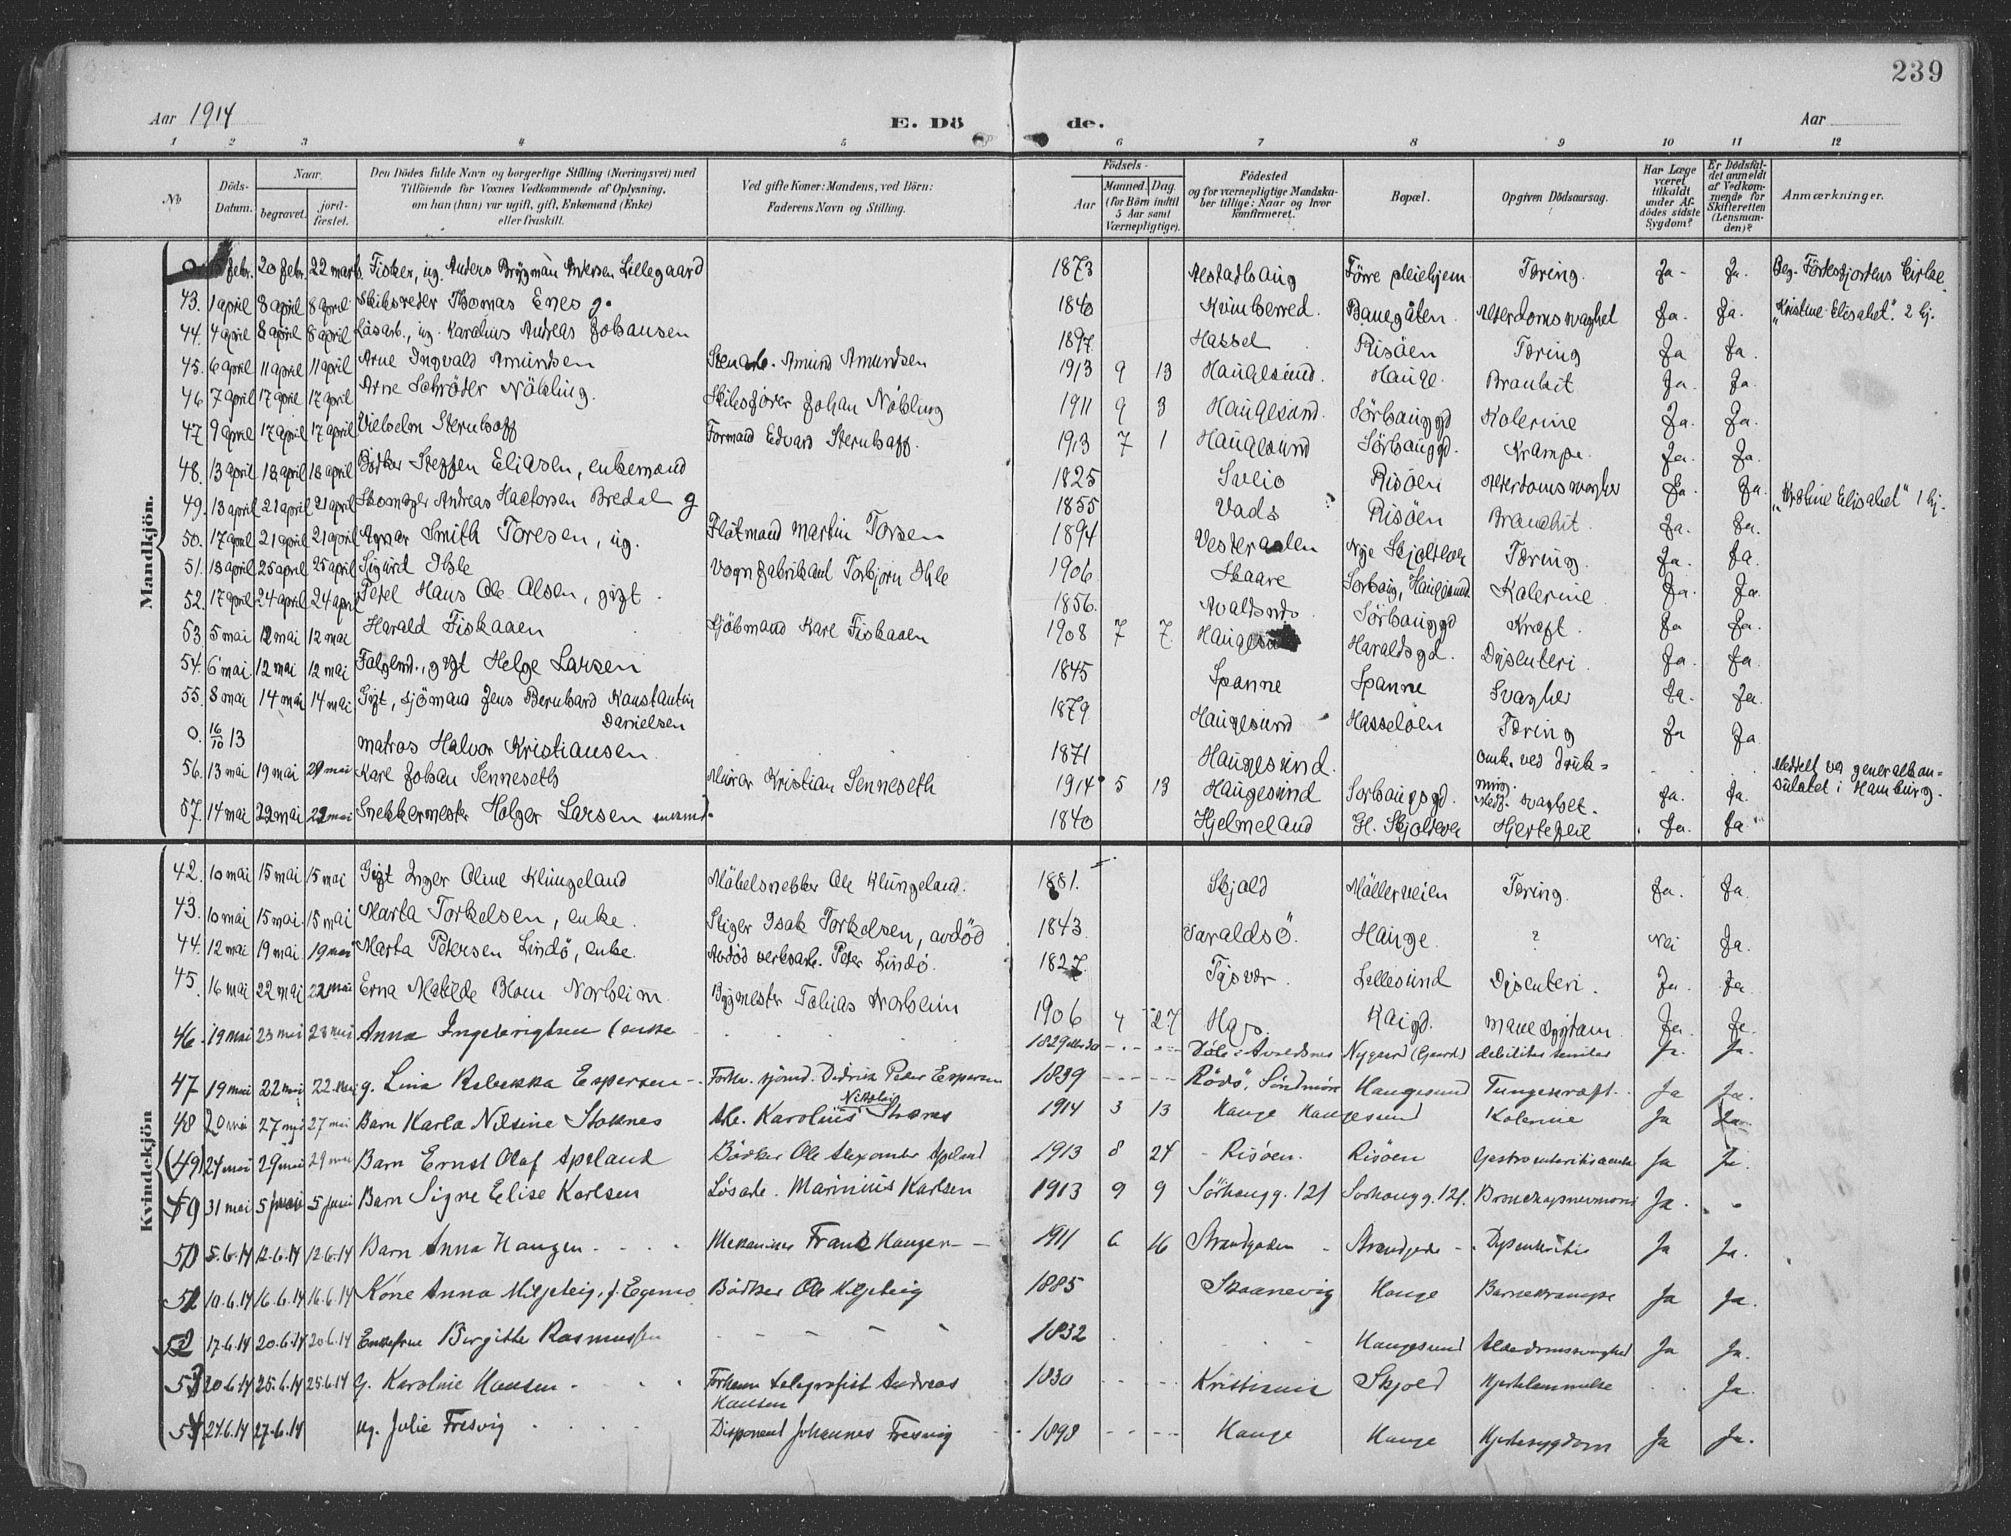 239
Aar 1914
E. Dö de.
Aar
1 2 3 4 5 6 7 8 9 10 11 12
No
Döds-Datum.
Naar
begravet.
jord-fæstet.
Den Dödes fulde Navn og borgerlige Stilling (Næringsvei) med
Tilföiende for Voxnes Vedkommende af Oplysning,
om han (hun) var ugift, gift, Enkemand (Enke)
eller fraskilt.
Ved gifte Koner: Mandens, ved Börn:
Faderens Navn og Stilling.
Födsels-
Aar
Maaned. Dag.
(for Börn indtil
5 Aar samt
Værnepligtige).
Födested
og for værnepligtige Mandska-
ber tillige: Naar og hvor
konfirmeret.
Bopæl.
Opgiven Dödsaarsag.
Har Læge
været
tilkaldt
under Af-
dödes sidste
Sygdom?
Er Dödsfal-
det anmeldt
af Vedkom-
mende for
Skifteretten
(Lensman-
den)?
Anmærkninger.
Mandkjön.
0. febr. 20 febr. 22 marts. Fisker, ug. Anders Brygman Andersen Lillegaard 1873 Förre pleiehjem Tæring. Ja. Ja. Beg. Fördesfjordens kirke
43. 1 april 8 april 8 april Skibsreder Thomas Enes g. 1840 Kvinherred. Banegåten. Alderdomssvaghet Ja. Ja. "Kristine Elisabet". 2 kj.
44. 4 april 8 april 8 april Løsarb., ug. Karolius Andreas Johansen 1897. Hassel Risöen Tæring Ja Ja.
45. 6 april 11 april 11 april Arne Ingvald Amundsen Stenarb. Amund Amundsen 1913 9 13 Haugesund. Hauge. Ja. Ja.
46. 7 april 17 april 17 april Arne Schröder Nöbling. Skibsförer Johan Nöbling 1911 9 3 Haugesund. Sörhauggd Kolerine Ja. Ja.
47. 9 april 17 april 17 april Vilhelm Sternhoff Formand Edvard Sternhoff. 1913 7 1 Haugesund Sörhauggd. Krampe. Ja. Ja.
48. 13 april 18 april 18 april Bödker Steffen Eliasen, enkemand 1825 Sveio Risöen Alderdomssvaghet Ja. Ja.
49. 13 april 21 april 21 april Andreas Bredal g 1855 Vads ? Risöen Ja. Ja. Elisabet" 1 kj.
50. 17 april 21 april 21 april Agnar Smith Toresen, ug. Flötmand Martin Toresen 1894 Vesteraalen Nye Skjoldevei Tæring. Ja. Ja.
51. 18 april 25 april 25 april Sigurd Ihle Vognfabrikant Torbjorn Ihle 1906 Skaare Sorhaug, Haugesund Kolerine Ja. Ja.
52. 17 april 24 april 24 april Peter Hans Ole Olsen, gift. 1856. Avaldsnes. Sörhauggd Kræft. Ja Ja.
53 5 mai 12 mai 12 mai Harald Fiskaaen Sjömand Karl Fiskaaen 1908 7 7. Haugesund Haraldsgd. Dysenteri. Ja. Ja.
54. 6 mai. 12 mai 12 mai gift Helge Larsen 1845 Spanne Spanne Svaghet Ja. Ja.
55. 8 mai 14 mai 14 mai Gift, sjömand Jens Bernhard Konstantin
Danielsen 1879 Haugesund Hasselöen Tæring Ja Ja
0. 16/10 13 matros Halvor Kristiansen 1871 Haugesund. omk. ved druk-
ning. Meddelt ved generalkon-
sulatet i Hamburg.
56. 13 mai 19 mai mai Karl Johan Senneseth Murer Kristian Senneseth 1914 5 13 Haugesund Sorhauggd. svaghet. Ja. Ja.
57. 14 mai 22 mai 22 mai Snekkermester Holger Larsen 1840 Hjelmeland Gl. Skjoldevei Hjertefeil Ja. Ja.
Kvindekjön
42. 10 mai 15 mai 15 mai Gift Inger Oline Klungeland Möbelsnekker Ole Klungeland. 1881. Skjold Möllerveien Tæring. Ja. Ja.
43. 10 mai 15 mai. 15 mai Marta Torkelsen, enke. Stiger Isak Torkelsen, avdöd 1843. Varaldsö. Hauge. ? Nei Ja.
44. 12 mai 19 mai 19 mai Marta Petersen Lindö, enke. Avdöd verksarb. Peter Lindö. 1827. Tysvær Lillesund Dysenteri. Ja. Ja.
45. 16 mai 22 mai 22 mai Erna Matilde Blom Norheim. Bygmester Tobias Norheim 1906 4 27 Haugesund Kaigd. Mavesygdom. Ja. Ja.
46. 19 mai 23 mai 23 mai Anna Ingebrigtsen (enke 1829 Avaldsnes Nygaard (Gaard) debilitas senilis Ja. Ja.
47 19 mai 22 mai 22 mai g. Lina Rebekka Espersen Forhv. sjömd. Didrik Peter Espersen 1839 Rödö, Söndmöre Haugesund Tungekræft. Ja Ja.
48 20 mai 27 mai 27 mai Barn Karla Nilsine Stoknes Arb. Karolius Nikolai Stoknes 1914 3 13 Hauge Haugesund Kolerine Ja Ja
(49) 24 mai 29 mai 29 mai Barn Ernst Olaf Apeland Bödker Ole Alexander Apeland 1913 8 24 Risöen. Risöen Gastroenteritis acuta Ja Ja.
49 31 mai 5 juni 5 juni Barn Signe Elise Karlsen Lösarb. Marinius Karlsen 1913 9 9 Sörhaugg. 121 Sorhaugg. 121. Bronchopneumoni Ja.
50 5.6.14 12.6.14 12.6.14 Barn Anna Haugen Mekaniker Frank Haugen 1911 6 16 Strandgaden Strandgade Ja Ja.
51 10.6.14 16.6.14 16.6.14 Kone Anna Miljeteig, f. Egenes Bödker Ole Miljeteig 1885 Skaanevig Hauge Barnekrampe Ja Ja.
52 17.6.14 20.6.14 20.6.14 Enkefrue Birgitte Rasmussen 1832 Haugesund Alderdomssvaghed Ja Ja.
53 20.6.14 25.6.14 25.6.14 G. Karoline Hansen Forhenv. telegrafist Andreas
Hansen 1830 Kristiania Skjold Hjertelammelse Ja.
54 24.6.14 27.6.14 ug. Julie Fresvig Disponent Johannes Fresvig 1898 Hauge Hauge Hjertesygdom Ja Ja.